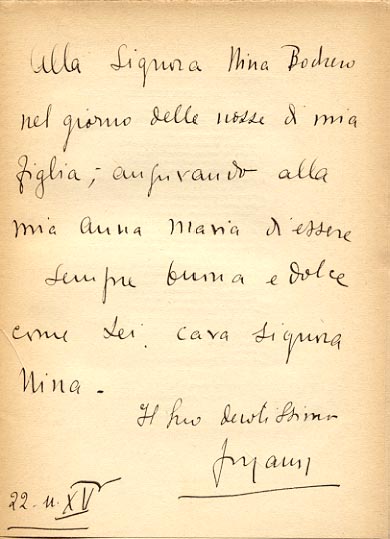 Alla Signora Nina Bodrero
nel giorno delle nozze di mia
figlia, augurando alla
mia Anna Maria di essere
sempre buona e dolce
come Lei, cara Signora
Nina -
Il Suo devotissimo
22. II. XV